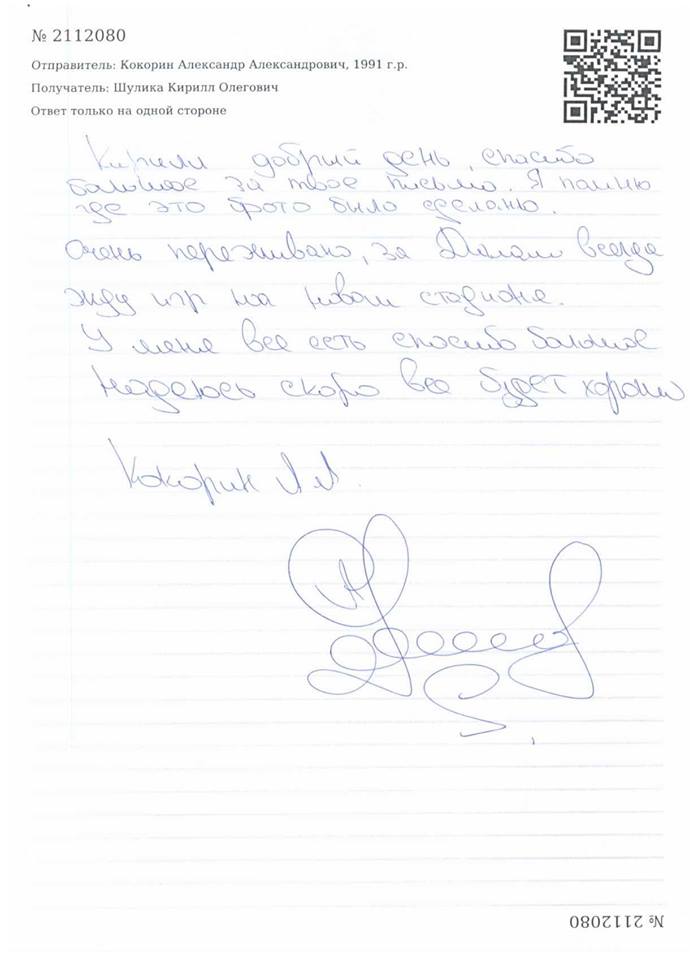 № 2112080
Отправитель: Кокорин Александр Александрович, 1991 г.р.
Получатель: Шулика Кирилл Олегович
Ответ только на одной стороне
Кирилл добрый день, спасибо
большое за твое письмо. Я помню
где это фото было сделано.
Очень переживаю, за Динамо всегда
жду игр на новом стадионе.
У меня все есть спасибо большое
Надеюсь скоро все будет хорошо
Кокорин А.А.
№ 2112080